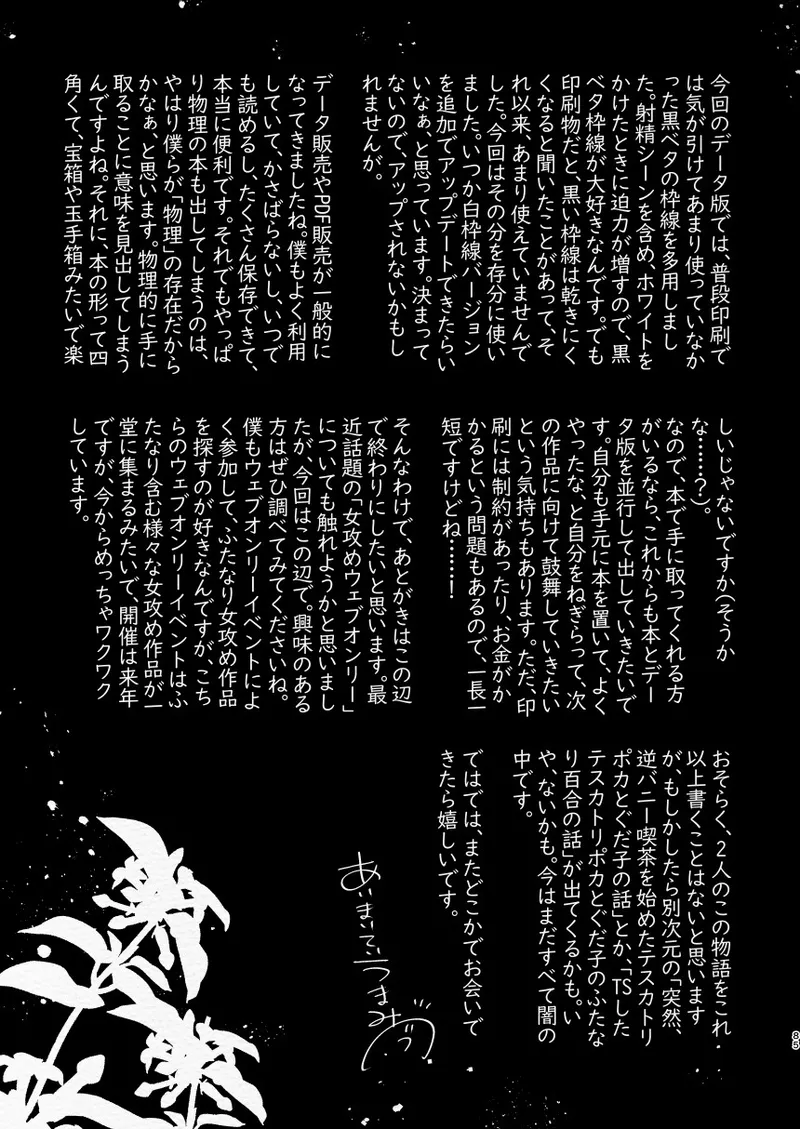 今回のデータ版では、普段印刷で
は気が引けてあまり使っていなか
った黒ベタの枠線を多用しまし
た。射精シーンを含め、ホワイトを
かけたときに迫力が増すので、黒
ベタ枠線が大好きなんです。でも
印刷物だと、黒い枠線は乾きにく
くなると聞いたことがあって、そ
れ以来、あまり使えていませんで
した。今回はその分を存分に使い
ました。いつか白枠線バージョン
を追加でアップデートできたらい
いなぁ、と思っています。決まって
ないので、アップされないかもし
れませんが。
データ販売やPDF販売が一般的に
なってきましたね。僕もよく利用
していて、かさばらないし、いつで
も読めるし、たくさん保存できて、
本当に便利です。それでもやっぱ
り物理の本も出してしまうのは、
やはり僕らが「物理」の存在だから
かなぁ、と思います。物理的に手に
取ることに意味を見出してしまう
んですよね。それに、本の形って四
角くて、宝箱や玉手箱みたいで楽
しいじゃないですか(そうか
な……?)。
なので、本で手に取ってくれる方
がいるなら、これからも本とデー
タ版を並行して出していきたいで
す。自分も手元に本を置いて、よく
やったな、と自分をねぎらって、次
の作品に向けて鼓舞していきたい
という気持ちもあります。ただ、印
刷には制約があったり、お金がか
かるという問題もあるので、一長一
短ですけどね……!
そんなわけで、あとがきはこの辺
で終わりにしたいと思います。最
近話題の「女攻めウェブオンリー」
についても触れようかと思いまし
たが、今回はこの辺で。興味のある
方はぜひ調べてみてくださいね。
僕もウェブオンリーイベントによ
く参加して、ふたなり女攻め作品
を探すのが好きなんですが、こち
らのウェブオンリーイベントはふ
たなり含む様々な女攻め作品が一
堂に集まるみたいで、開催は来年
ですが、今からめっちゃワクワク
しています。
おそらく、2人のこの物語をこれ
以上書くことはないと思います
が、もしかしたら別次元の「突然、
逆バニー喫茶を始めたテスカトリ
ポカとぐだ子の話」とか、「TSした
テスカトリポカとぐだ子のふたな
り百合の話」が出てくるかも。い
や、ないかも。今はまだすべて闇の
中です。
ではでは、またどこかでお会いで
きたら嬉しいです。
あいまいでぃうまみ
85